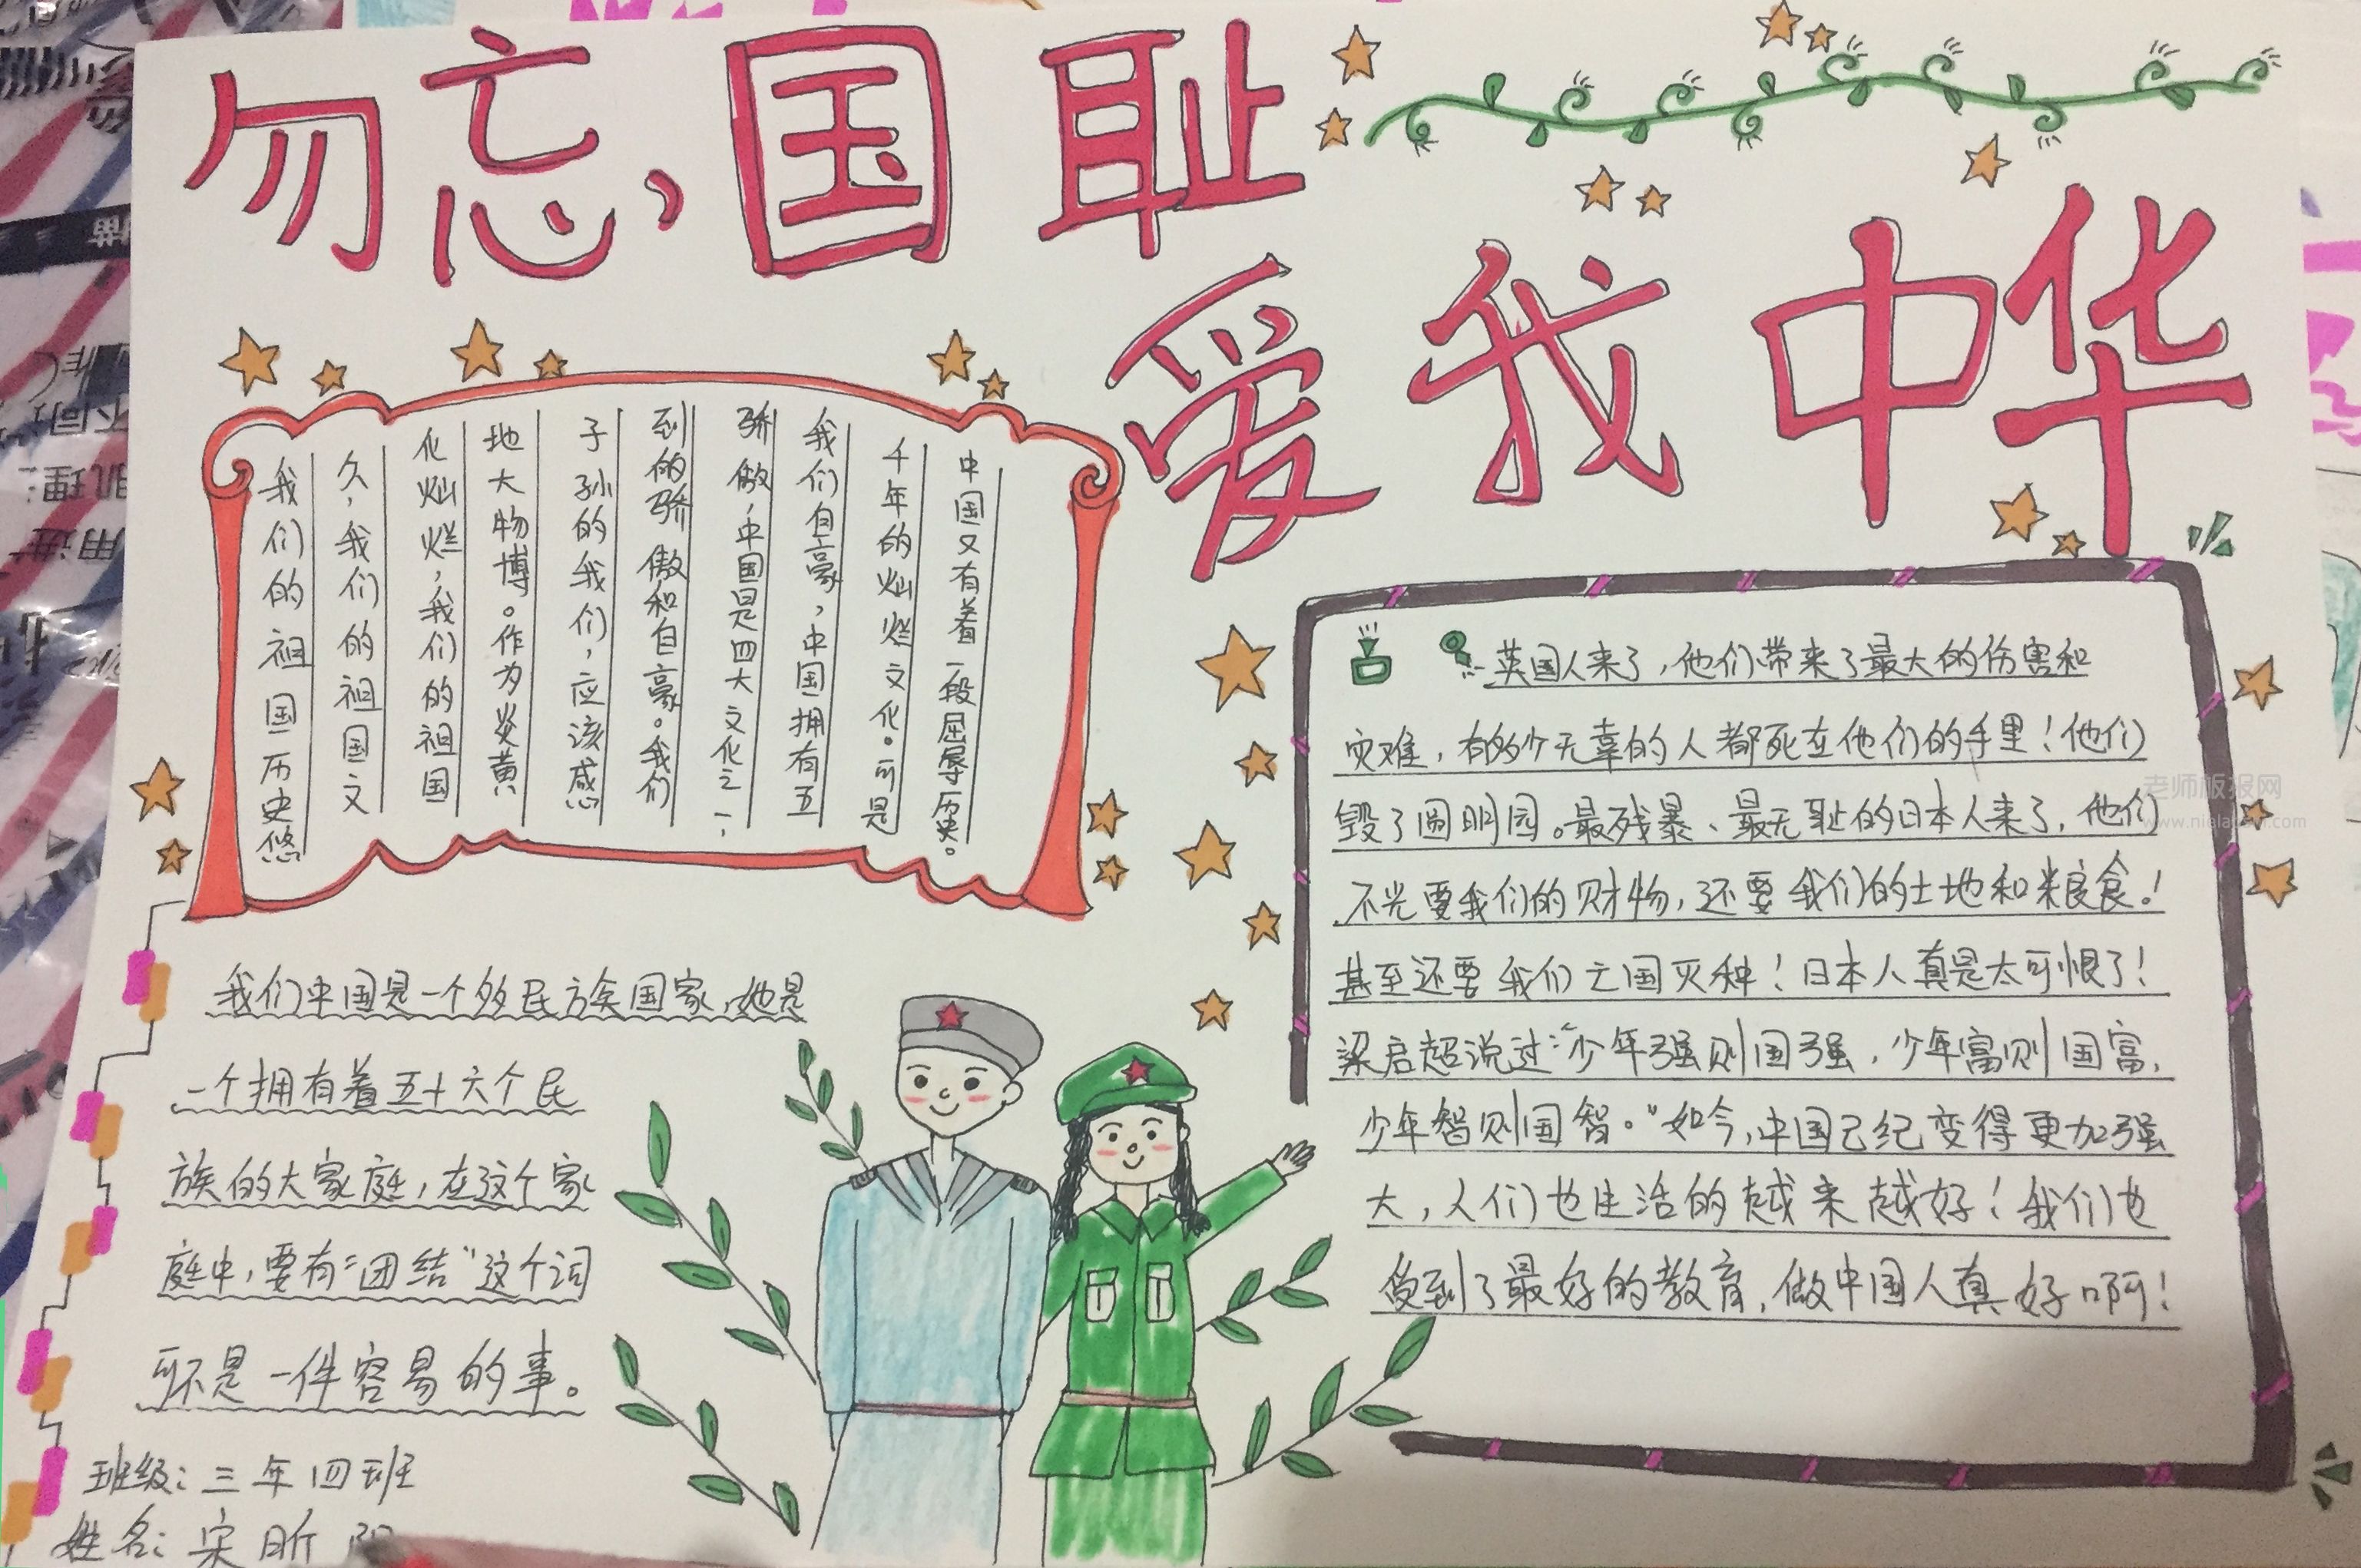 勿忘,国耻
爱我中华
我们的祖国历史悠
久,我们的祖国文
化灿烂,我们的祖国
地大物博。作为炎黄
子孙的我们,应该感
到的骄傲和自豪。我们
骄傲,中国是四大文化之一,
我们自豪,中国拥有五
千年的灿烂文化。可是
中国又有着一段屈辱历史。
英国人来了,他们带来了最大的伤害和
灾难,有多少无辜的人都死在他们的手里!他们
毁了圆明园。最残暴、最无耻的日本人来了,他们
不光要我们的财物,还要我们的土地和粮食!
甚至还要我们亡国灭种!日本人真是太可恨了!
梁启超说过:“少年强则国强,少年富则国富,
少年智则国智。”如今,中国己纪变得更加强
大,人们也生活的越来越好!我们也
受到了最好的教育,做中国人真好啊!
我们中国是一个多民族国家,她是
一个拥有着五十六个民
族的大家庭,在这个家
庭中,要有“团结”这个词
可不是一件容易的事。
班级:三年四班
姓名:宋昕
老师板报网